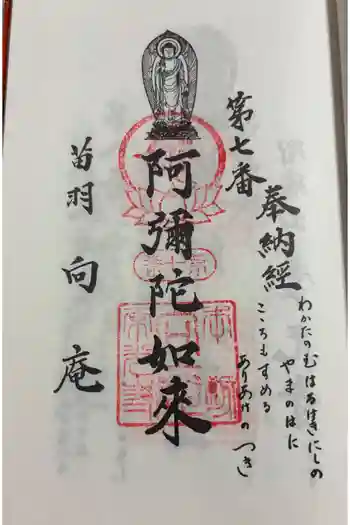 奉納経
わかたのむ はるけきにしの
やまのはに
こころもすめる
ありあけの つき
第七番
阿彌陀如來
苗羽 向庵